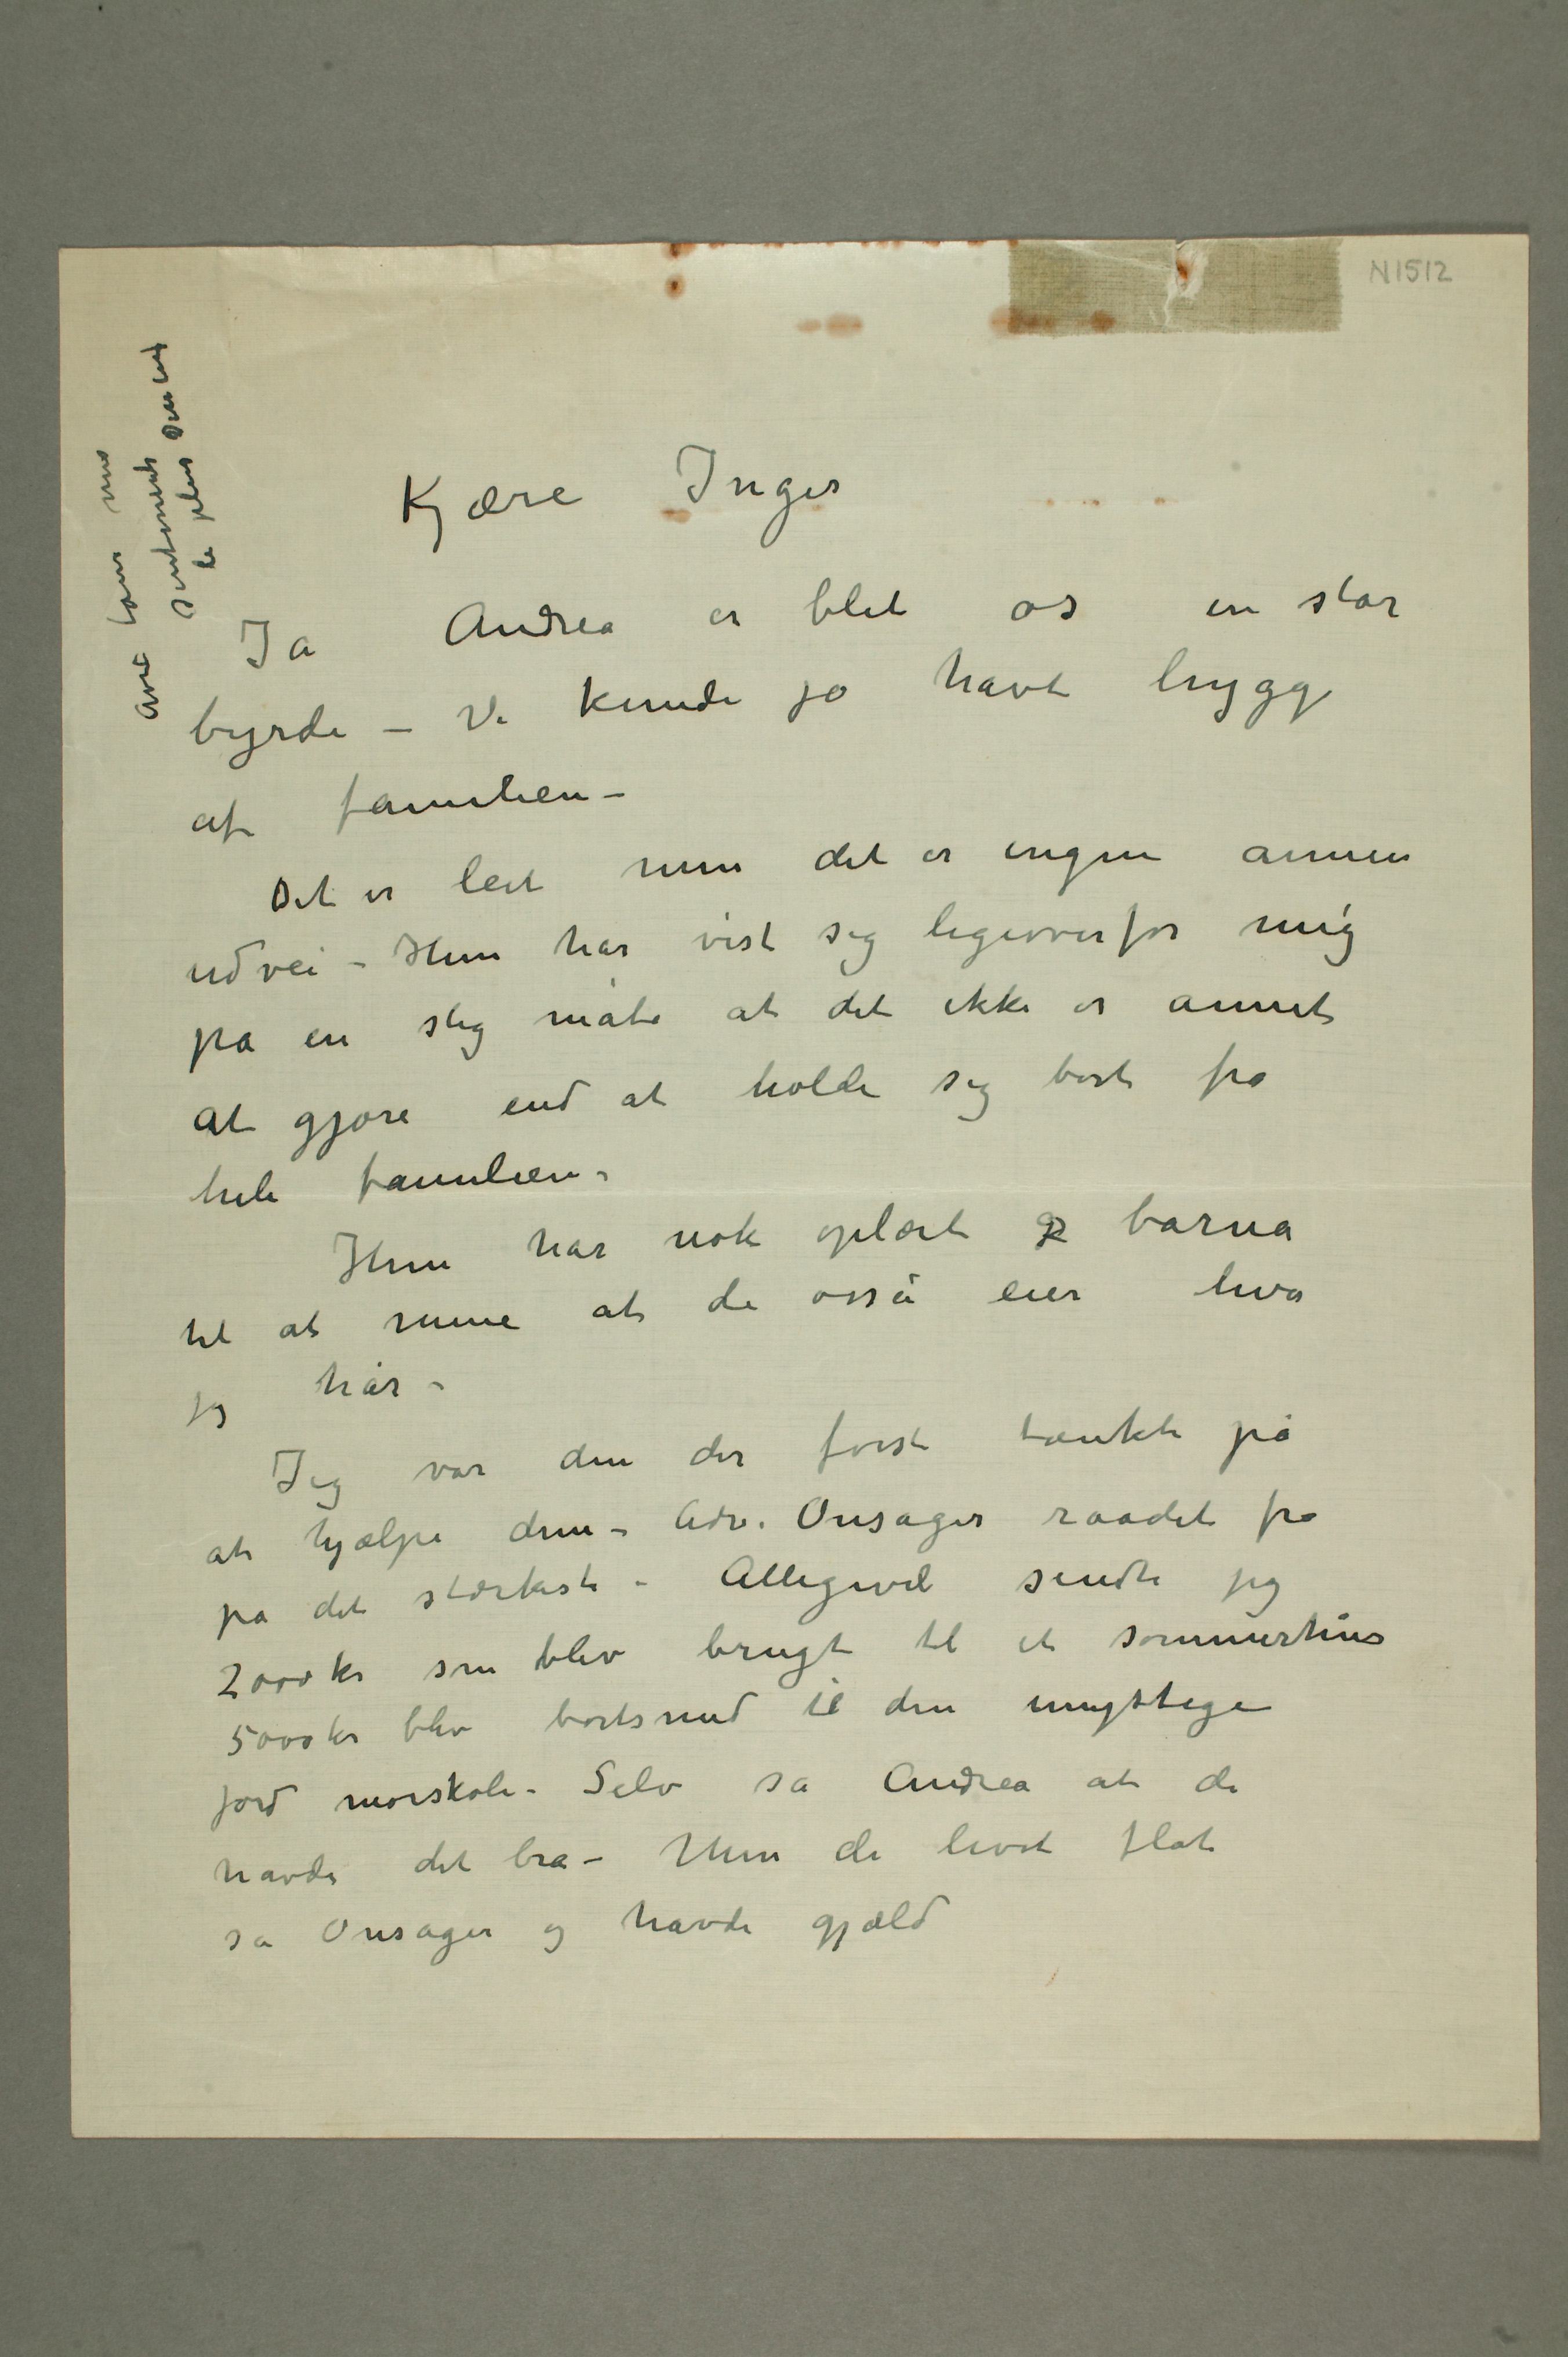 N1512
avec tous mes
sentiments
les plus
Kjære Inger
Ja Andrea er blet os en stor
byrde – Vi kunde jo havt hygge
af familien –
Det er leit men det er ingen annen
udvei – Hun har vist sig ligeoverfor mig
på en slig måte at det ikke er annet
at gjøre end at holde sig bort fra
hele familien –
Hun har nok oplært barna
til at mene at de osså eier hva
jeg har –
Jeg var den der først tænkte på
at hjælpe dem – Adv. Onsager raadet fra
på det stærkeste – Alligevel sendte jeg
2000 kr som blev brugt til et sommerhus
5000 kr blev bortsmed til den unyttige
jordmorskole – Selv sa Andrea at de
havde det bra – Men de levet flot
sa Onsager og havde gjæld